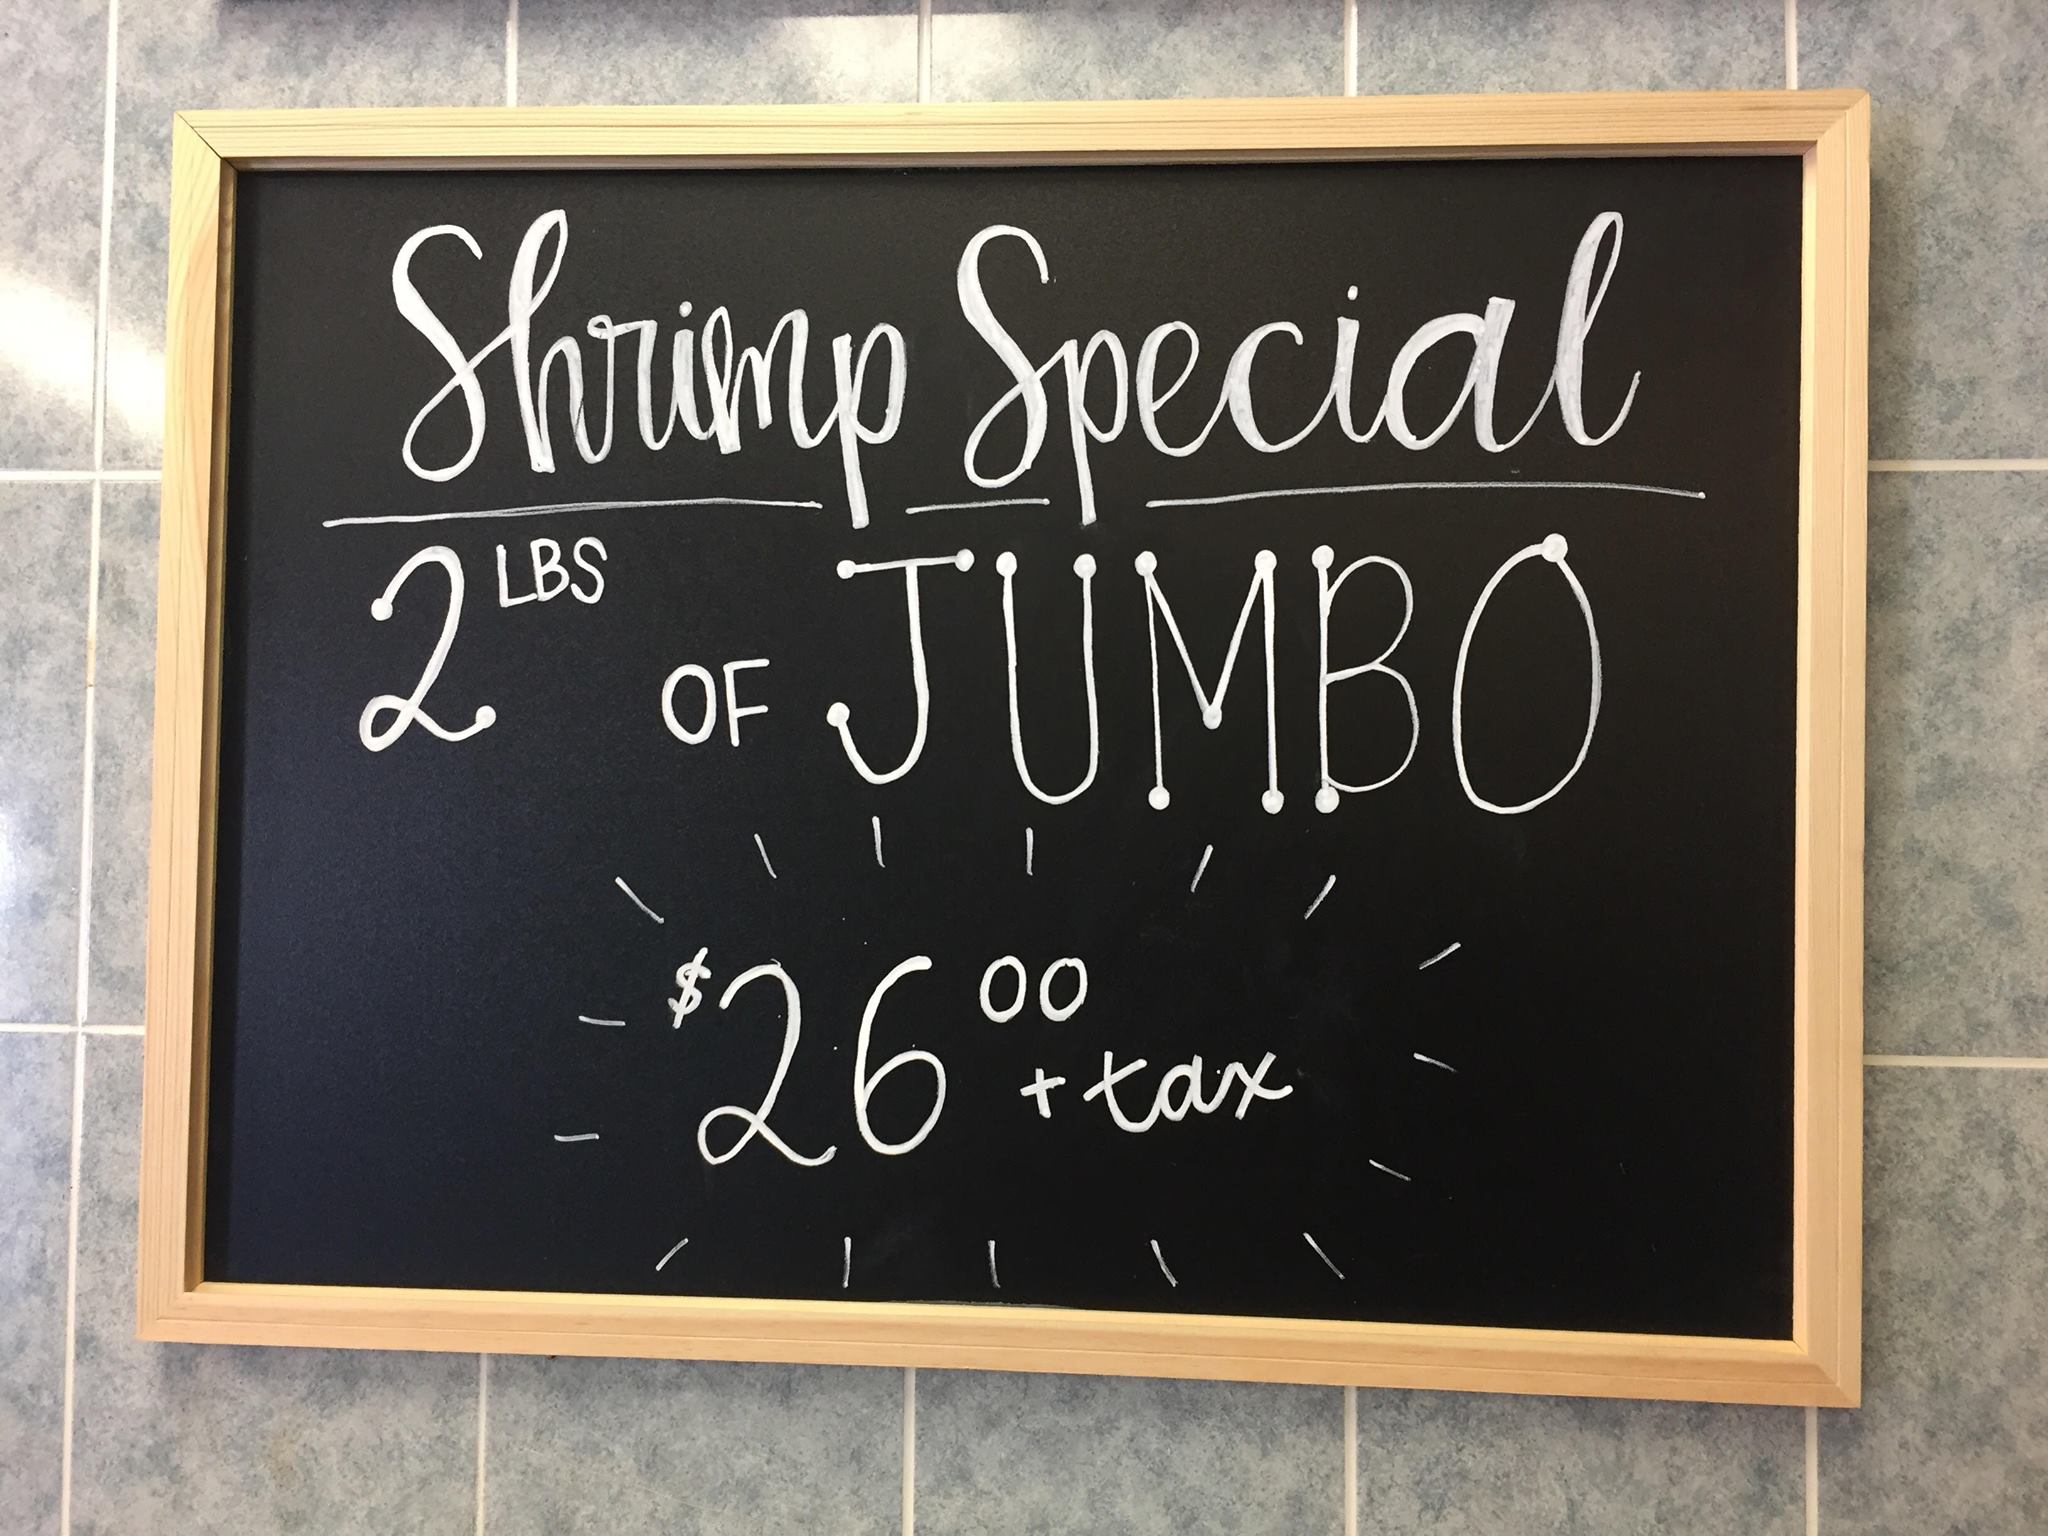 Shrimp Special
2 LBS OF JUMBO
$26 00 + tax